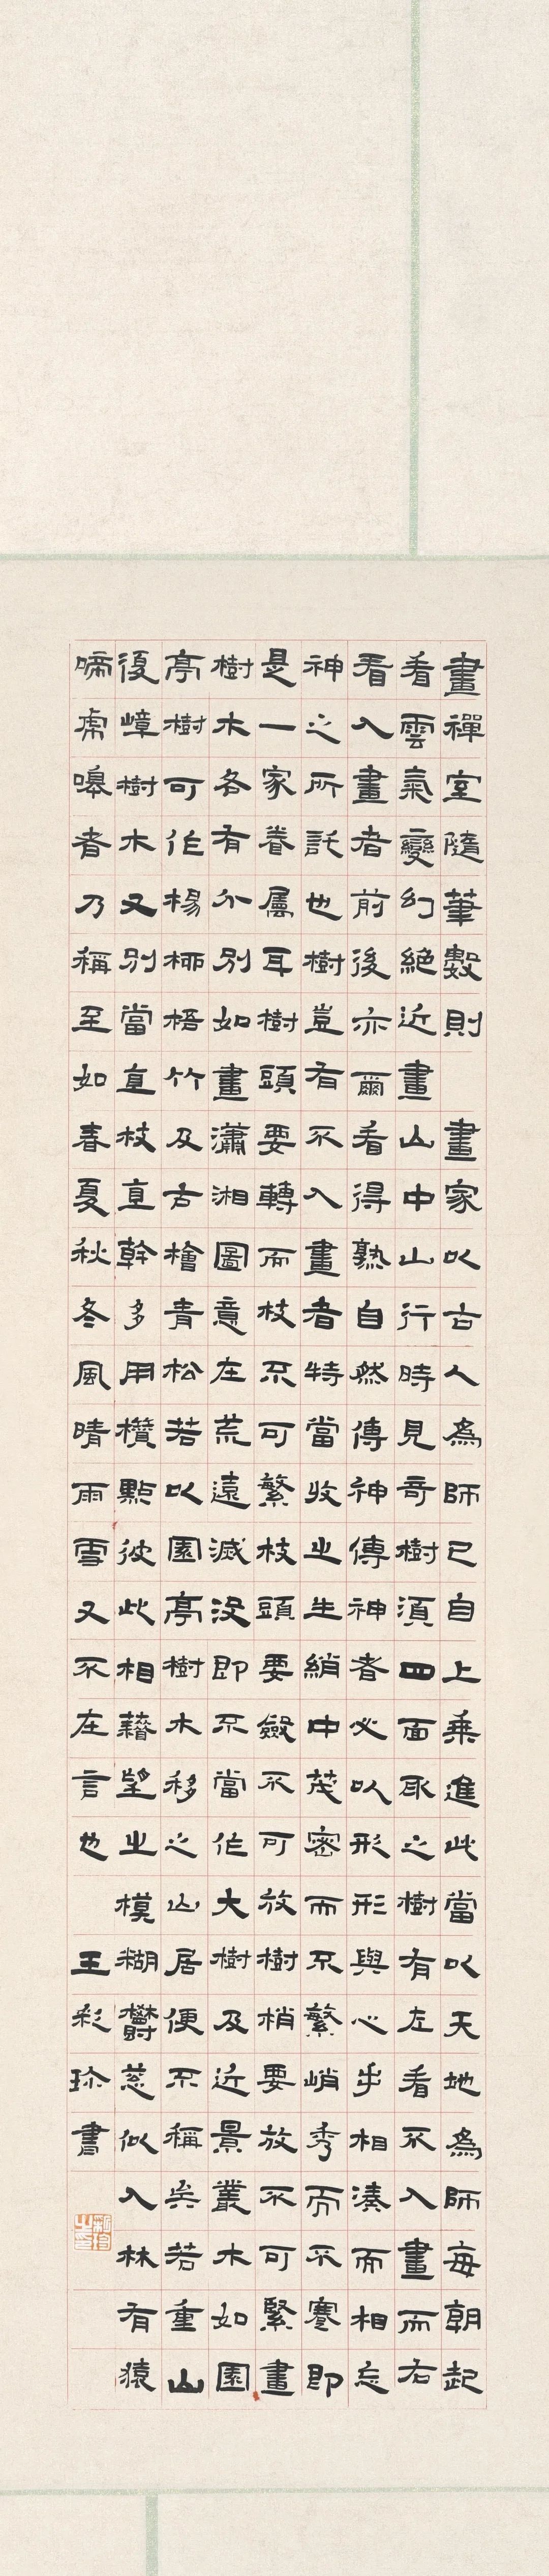 畫禪室隨筆數則 畫家以古人為師已自上乘進此當以天地為師每朝起
看雲氣變幻絕近畫山中山行時見奇樹須四面取之樹有左看不入畫而右
看入畫者前後亦爾看得熟自然傳神傳神者必以形形與心手相湊而相忘
神之所託也樹豈有不入畫者特當收之生綃中茂密而不繁峭秀而不蹇即
是一家眷屬耳樹頭要轉而枝不可繁枝頭要斂不可放樹梢要放不可緊畫
樹木各有分別如畫瀟湘圖意在荒遠滅沒即不當作大樹及近景叢木如園
亭樹可作楊柳梧竹及古檜青松若以園亭樹木移之山居便不稱矣若重山
復嶂樹木又別當直枝直幹多用攢點彼此相藉望之模糊鬱蔥似入林有猿
啼虎嗥者乃稱至如春夏秋冬風晴雨雪又不在言也 王彩珍書